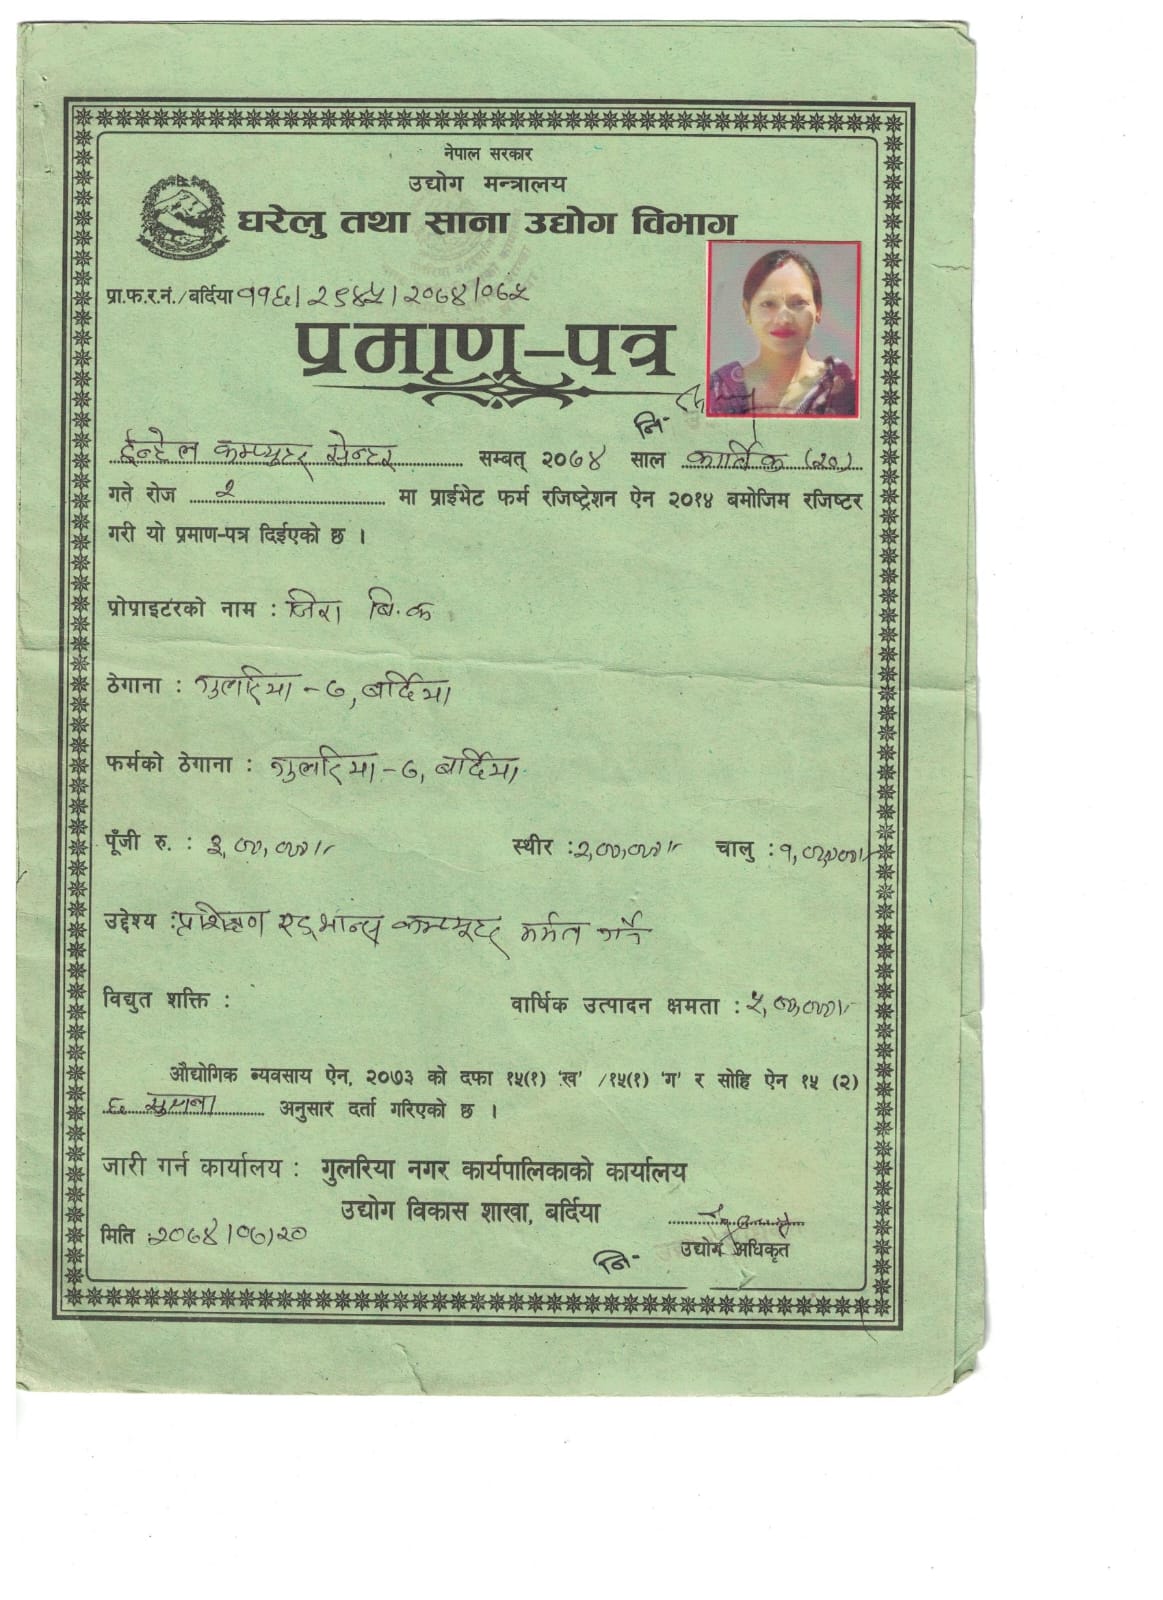 नेपाल सरकार
उद्योग मन्त्रालय
घरेलु तथा साना उद्योग विभाग
प्रा.फ.र.नं./बर्दिया ११६/२९४५/२०७४/०७५
प्रमाण-पत्र
नि-
ईन्टेल कम्प्युटर सेन्टर सम्बत् २०७४ साल कार्तिक (२०)
गते रोज २ मा प्राईभेट फर्म रजिष्ट्रेशन ऐन २०१४ बमोजिम रजिष्टर
गरी यो प्रमाण-पत्र दिईएको छ ।
प्रोप्राइटरको नाम : जिरा बि.क
ठेगाना : गुलरिया-७, बर्दिया
फर्मको ठेगाना : गुलरिया-७, बर्दिया
पूँजी रु. : ३,००,०००।- स्थीर : २,००,०००।- चालु : १,००,०००।-
उद्देश्य : प्रशिक्षण एड्भान्स कम्प्यूटर मर्मत गर्ने
विद्युत शक्ति : वार्षिक उत्पादन क्षमता : ५,००,०००।-
औद्योगिक व्यवसाय ऐन, २०७३ को दफा १५(१) 'ख' /१५(१) 'ग' र सोहि ऐन १५ (२)
अनुसार दर्ता गरिएको छ ।
जारी गर्न कार्यालय : गुलरिया नगर कार्यपालिकाको कार्यालय
उद्योग विकास शाखा, बर्दिया
मिति : २०७४/०७/२०
उद्योग अधिकृत
नि-